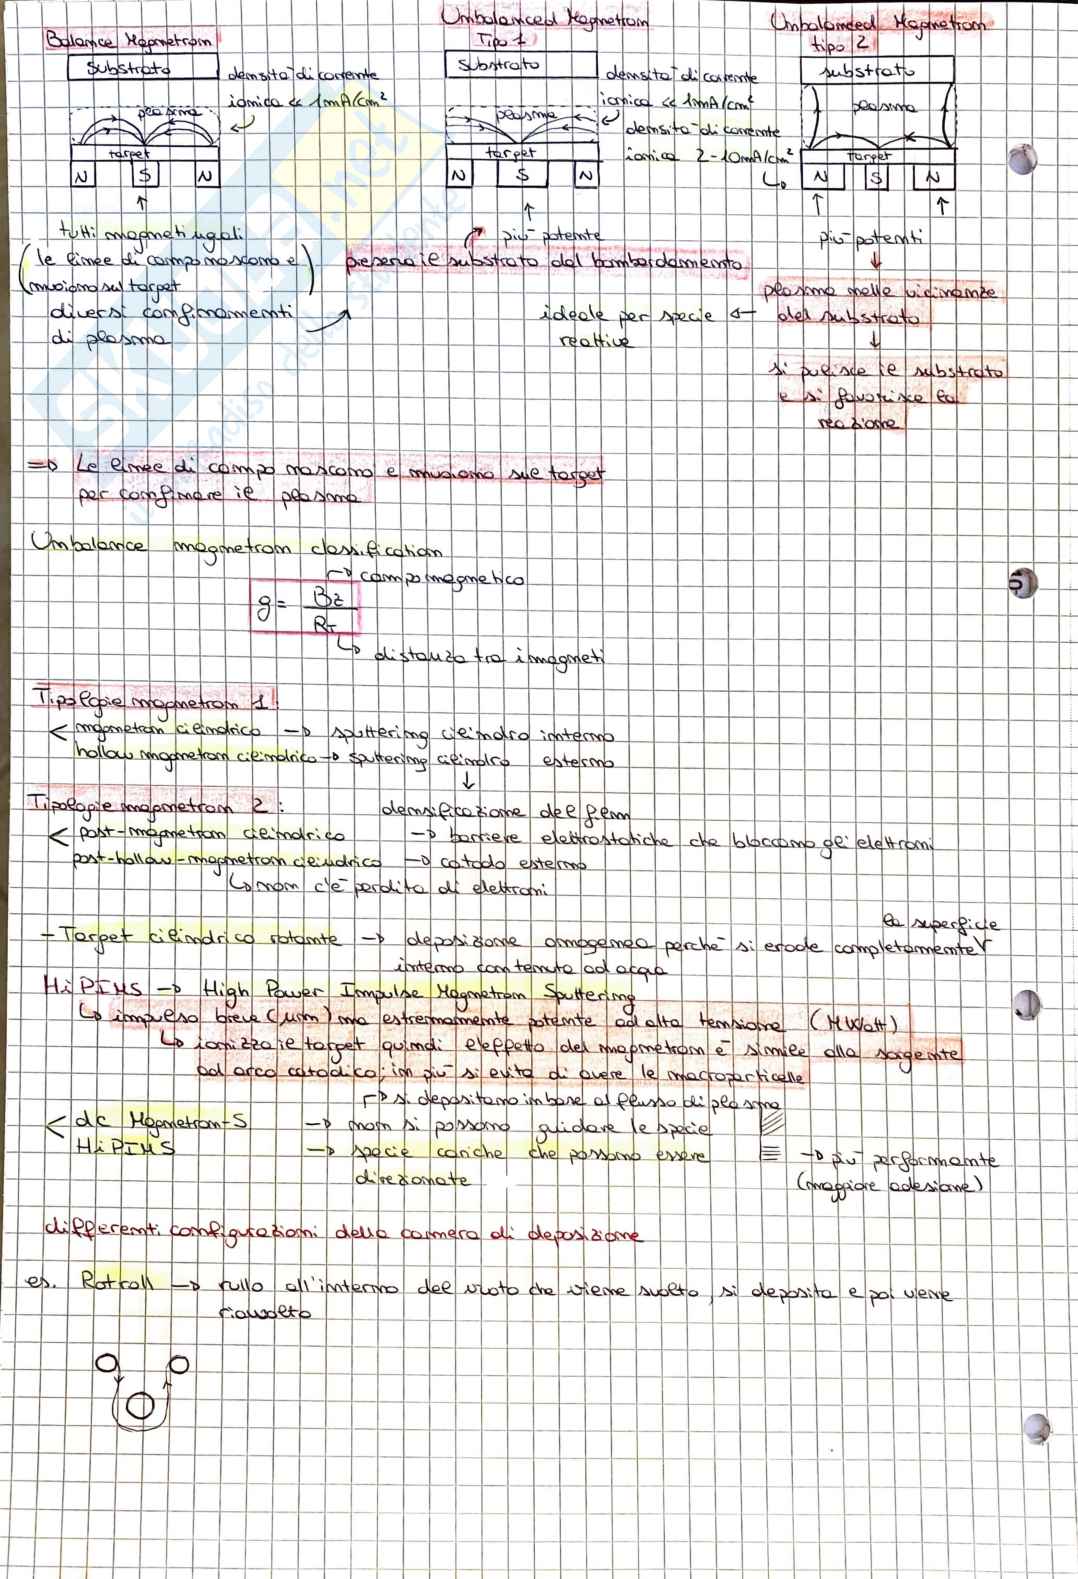 Balance Magnetron
Substrato
densità di corrente
ionica << 1mA/cm²
plasma
target
N S N
tutti magneti ugali
(le linee di campo nascono e
muoiono sul target)
diversi confinamenti
di plasma
Unbalanced Magnetron
Tipo 1
Substrato
densità di corrente
ionica << 1mA/cm²
plasma
target
N S N
più potente
preserva il substrato dal bombardamento
Unbalanced Magnetron
tipo 2
substrato
plasma
densità di corrente
ionica 2-10mA/cm²
target
N S N
più potenti
plasma nelle vicinanze
del substrato
→ ideale per specie
reattive
si pulisce il substrato
e si favorisce la
reazione
⇒ Le linee di campo nascono e muoiono sul target
per confinare il plasma
Unbalance magnetron classification
→ campo magnetico
g = Bz / RT
→ distanza tra i magneti
Tipologie magnetron 1:
< magnetron cilindrico → sputtering cilindro interno
hollow magnetron cilindrico → sputtering cilindro esterno
↓
densificazione del film
Tipologie magnetron 2:
< post-magnetron cilindrico → barriere elettrostatiche che bloccano gli elettroni
post-hollow-magnetron cilindrico → catodo esterno
↳ non c'è perdita di elettroni
- Target cilindrico rotante → deposizione omogenea perché si erode completamente la superficie
interno contenuto ad acqua
HiPIMS → High Power Impulse Magnetron Sputtering
↳ impulso breve (μm) ma estremamente potente ad alta tensione (MWatt)
↳ ionizza il target quindi l'effetto del magnetron è simile alla sorgente
ad arco catodico; in più si evita di avere le macroparticelle
→ si depositano in base al flusso di plasma
< dc Magnetron-S → non si possono guidare le specie
HiPIMS → specie cariche che possono essere → più performante
direzionate (maggiore adesione)
differenti configurazioni della camera di deposizione
es. Rotroll → rullo all'interno del vuoto che viene svolto, si deposita e poi viene
riavvolto